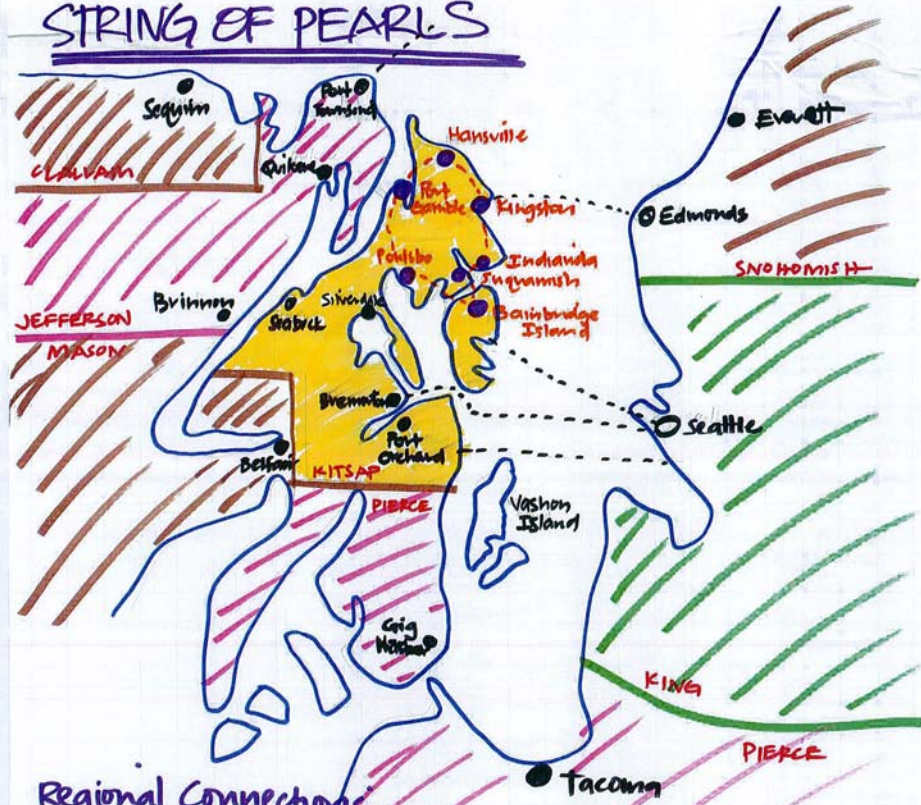 STRING OF PEARLS
Sequim
Port
Townsend
Everett
Hansville
CLALLAM
Quilcene
Port
Gamble
Kingston
Edmonds
Poulsbo
Indianola
Suquamish
SNOHOMISH
Brinnon
Seabeck
Silverdale
Bainbridge
Island
JEFFERSON
MASON
Bremerton
Seattle
Port
Orchard
Belfair
KITSAP
PIERCE
Vashon
Island
Gig
Harbor
KING
PIERCE
Tacoma
Regional Connections